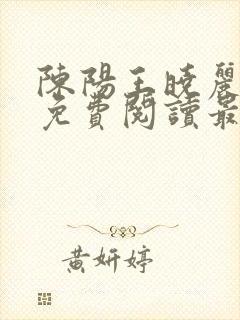 陳陽王曉麗
免費閱讀最
黃妍婷